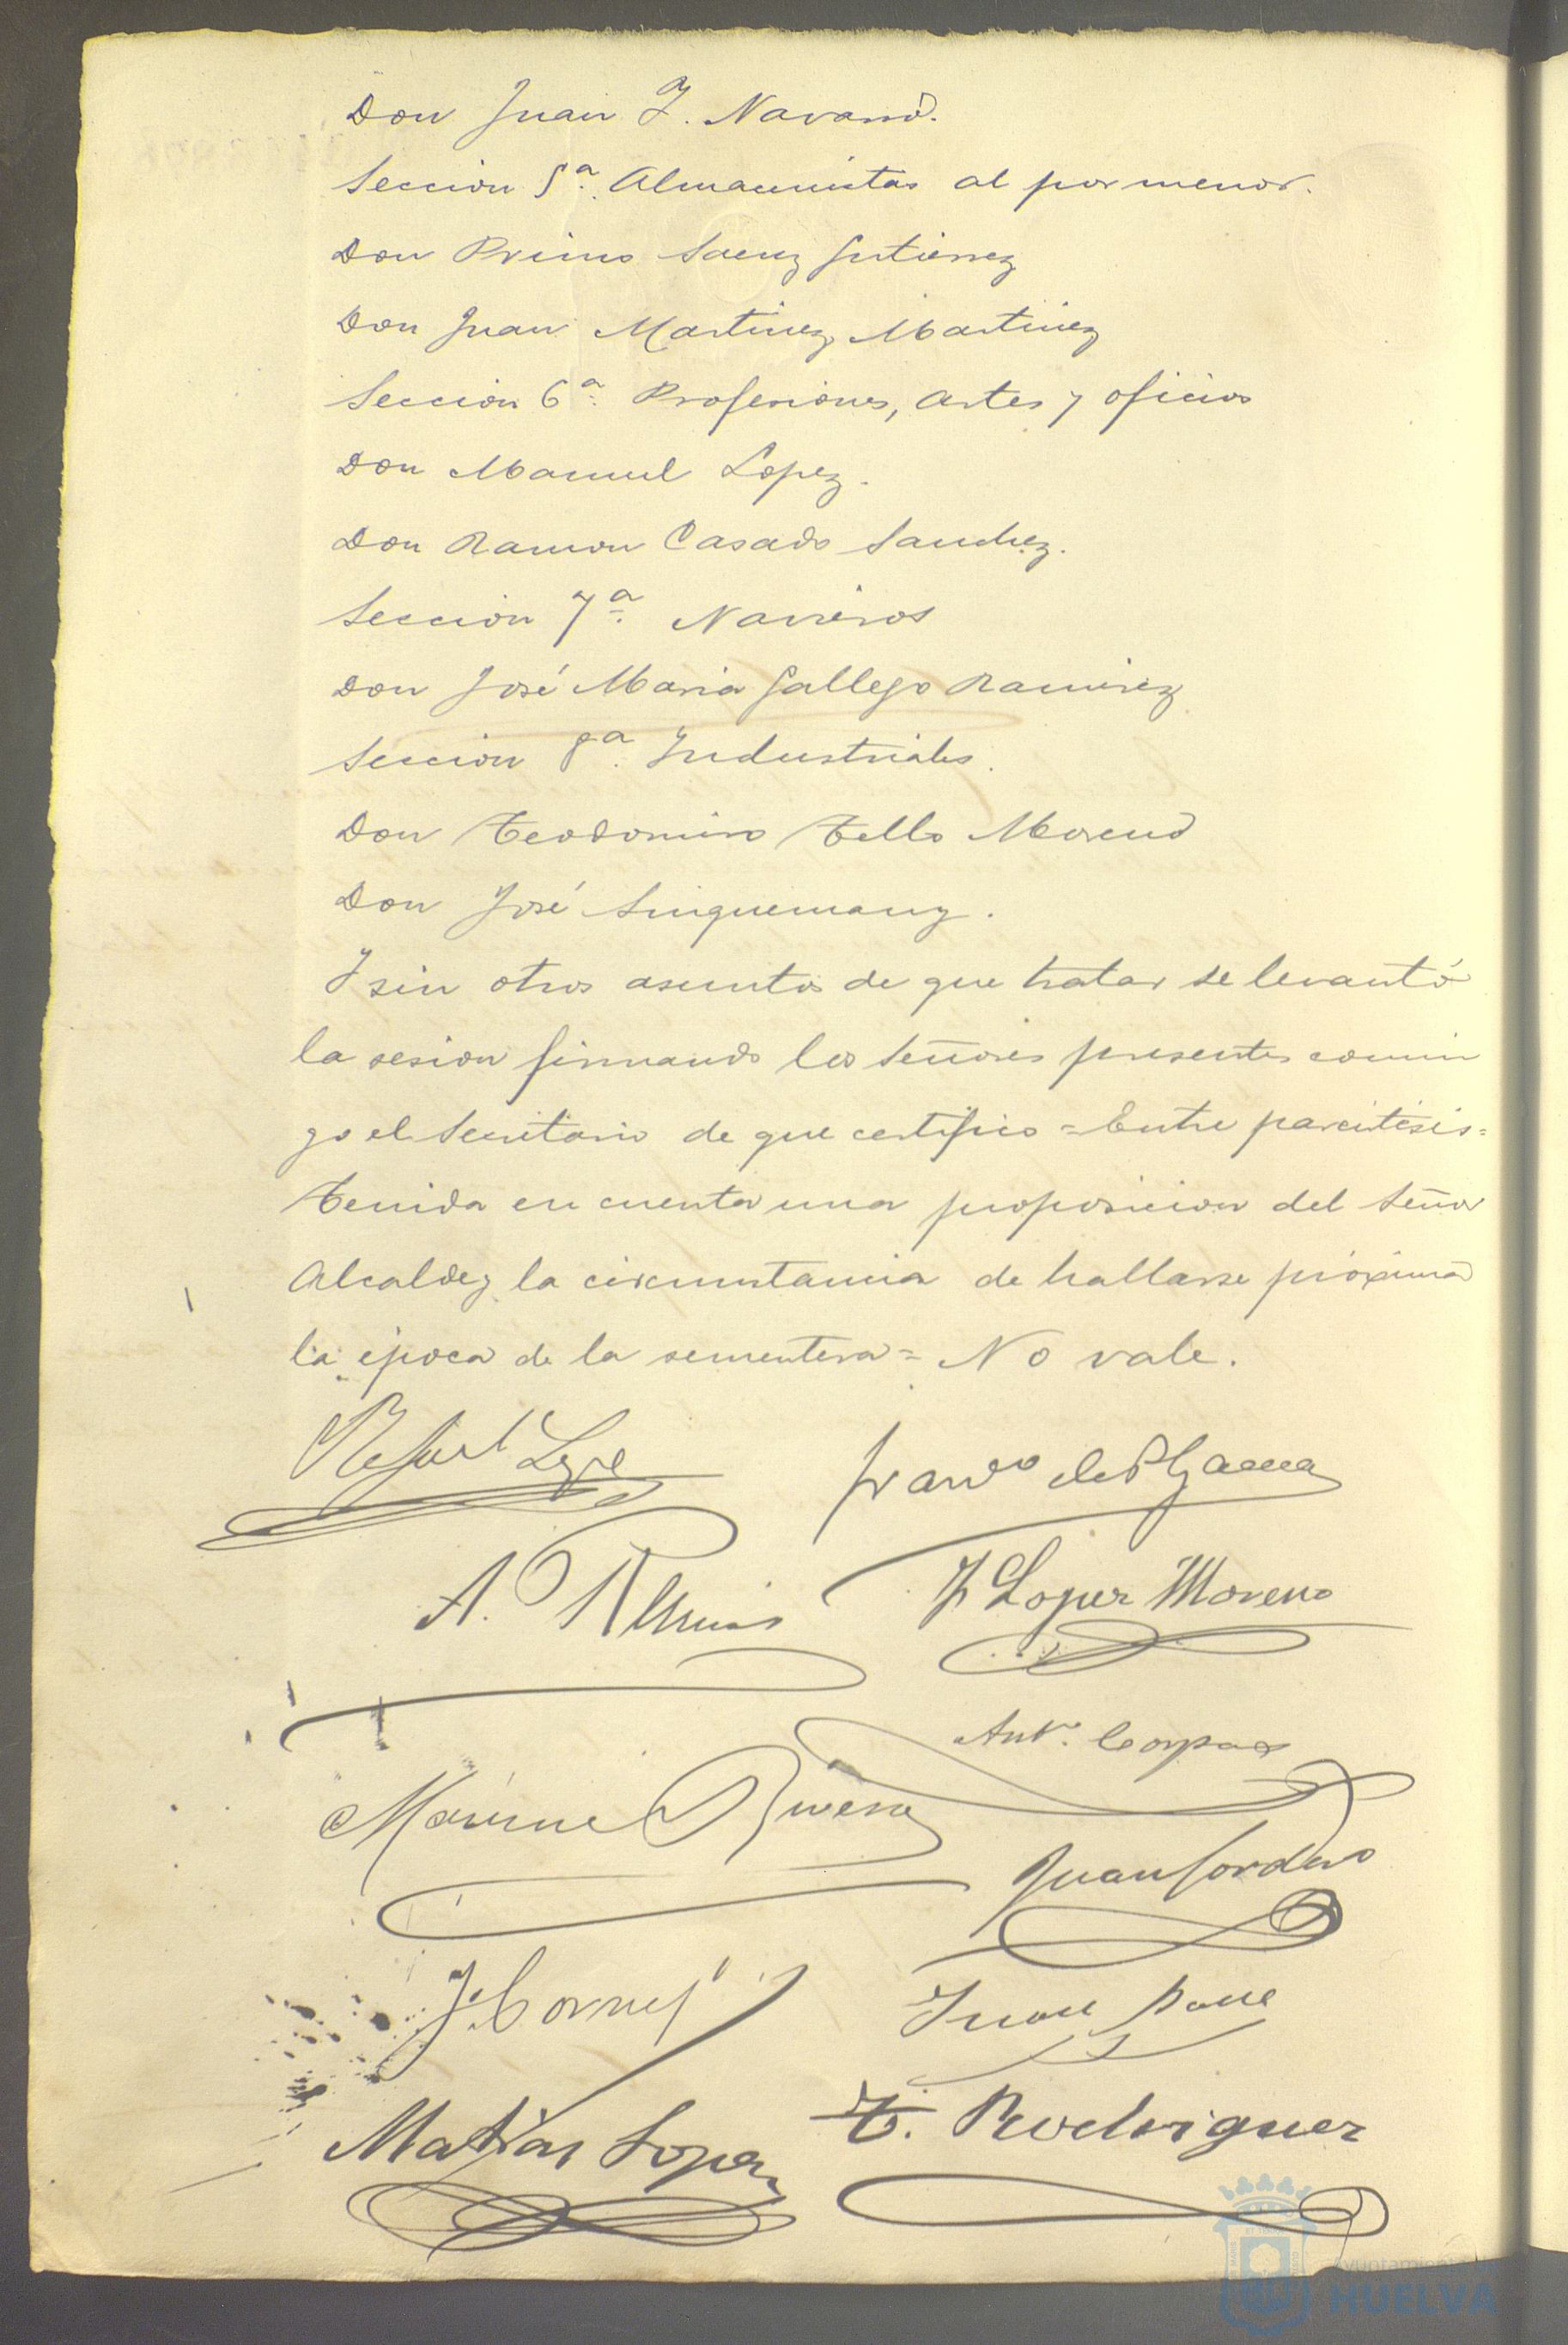 Don Juan J. Navarro.
Sección 5ª. Almacenistas al por menor.
Don Primo Saenz Gutierrez
Don Juan Martinez Martinez
Sección 6ª. Profesiones, artes y oficios
Don Manuel Lopez.
Don Ramon Casado Sanchez.
Sección 7ª. Navieros
Don José Maria Gallego Ramirez
Sección 8ª. Industriales.
Don Teodomiro Tello Moreno
Don José
Y sin otros asuntos de que tratar se levantó
la sesion firmando los Señores presentes conmi
go el Secretario de que certifico = Entre parentesis =
Tenida en cuenta una proposicion del Señor
Alcalde y la circunstancia de hallarse próxima
la época de la sementera = No vale.
Rafael Franco de P.
A. J Lopez Moreno
Antº. Corpas
Rivera
Juan Cordero
J. Juan
Matias Lopez T. Rodriguez
Ayuntamiento de
HUELVA